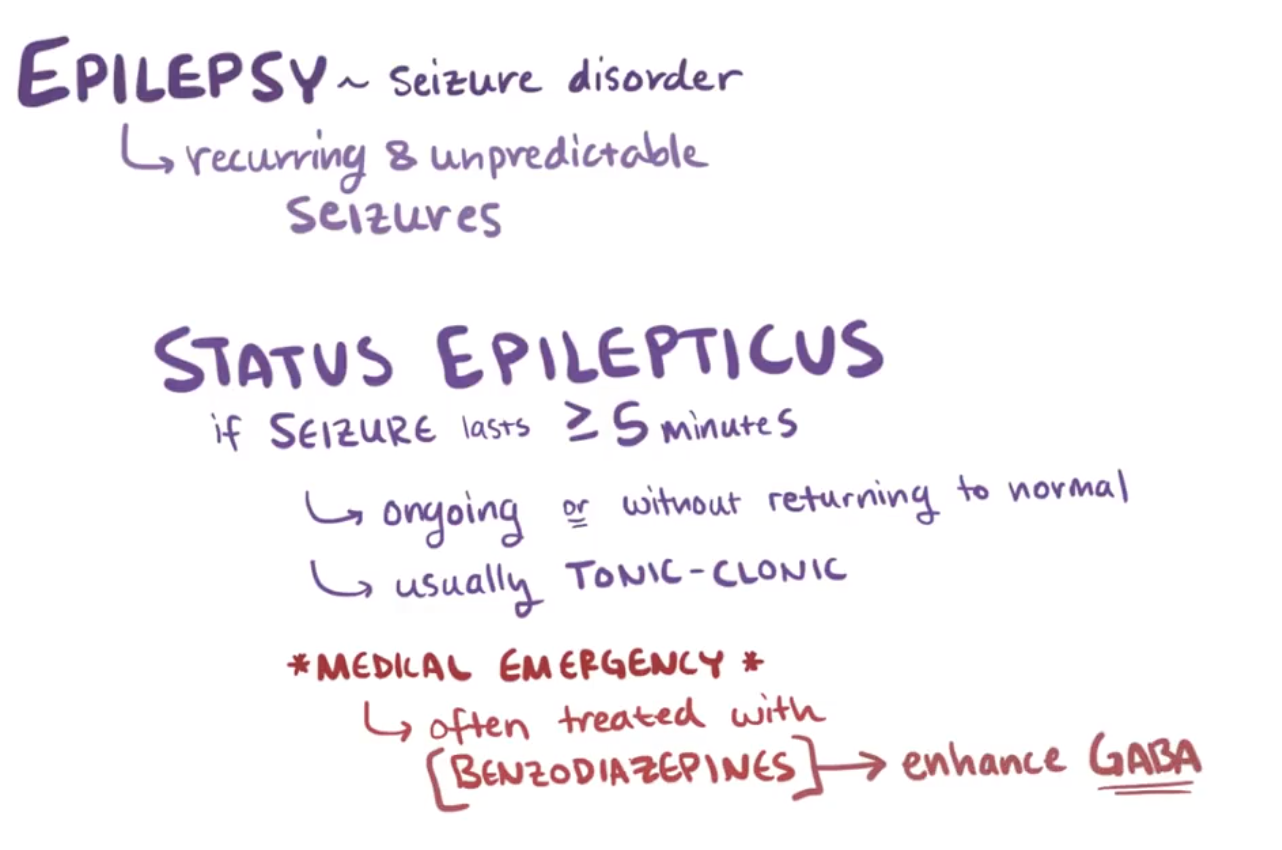 EPILEPSY ~ seizure disorder
↳ recurring & unpredictable
seizures
STATUS EPILEPTICUS
if SEIZURE lasts ≥ 5 minutes
↳ ongoing or without returning to normal
↳ usually TONIC-CLONIC
*MEDICAL EMERGENCY*
↳ often treated with
[BENZODIAZEPINES] → enhance GABA